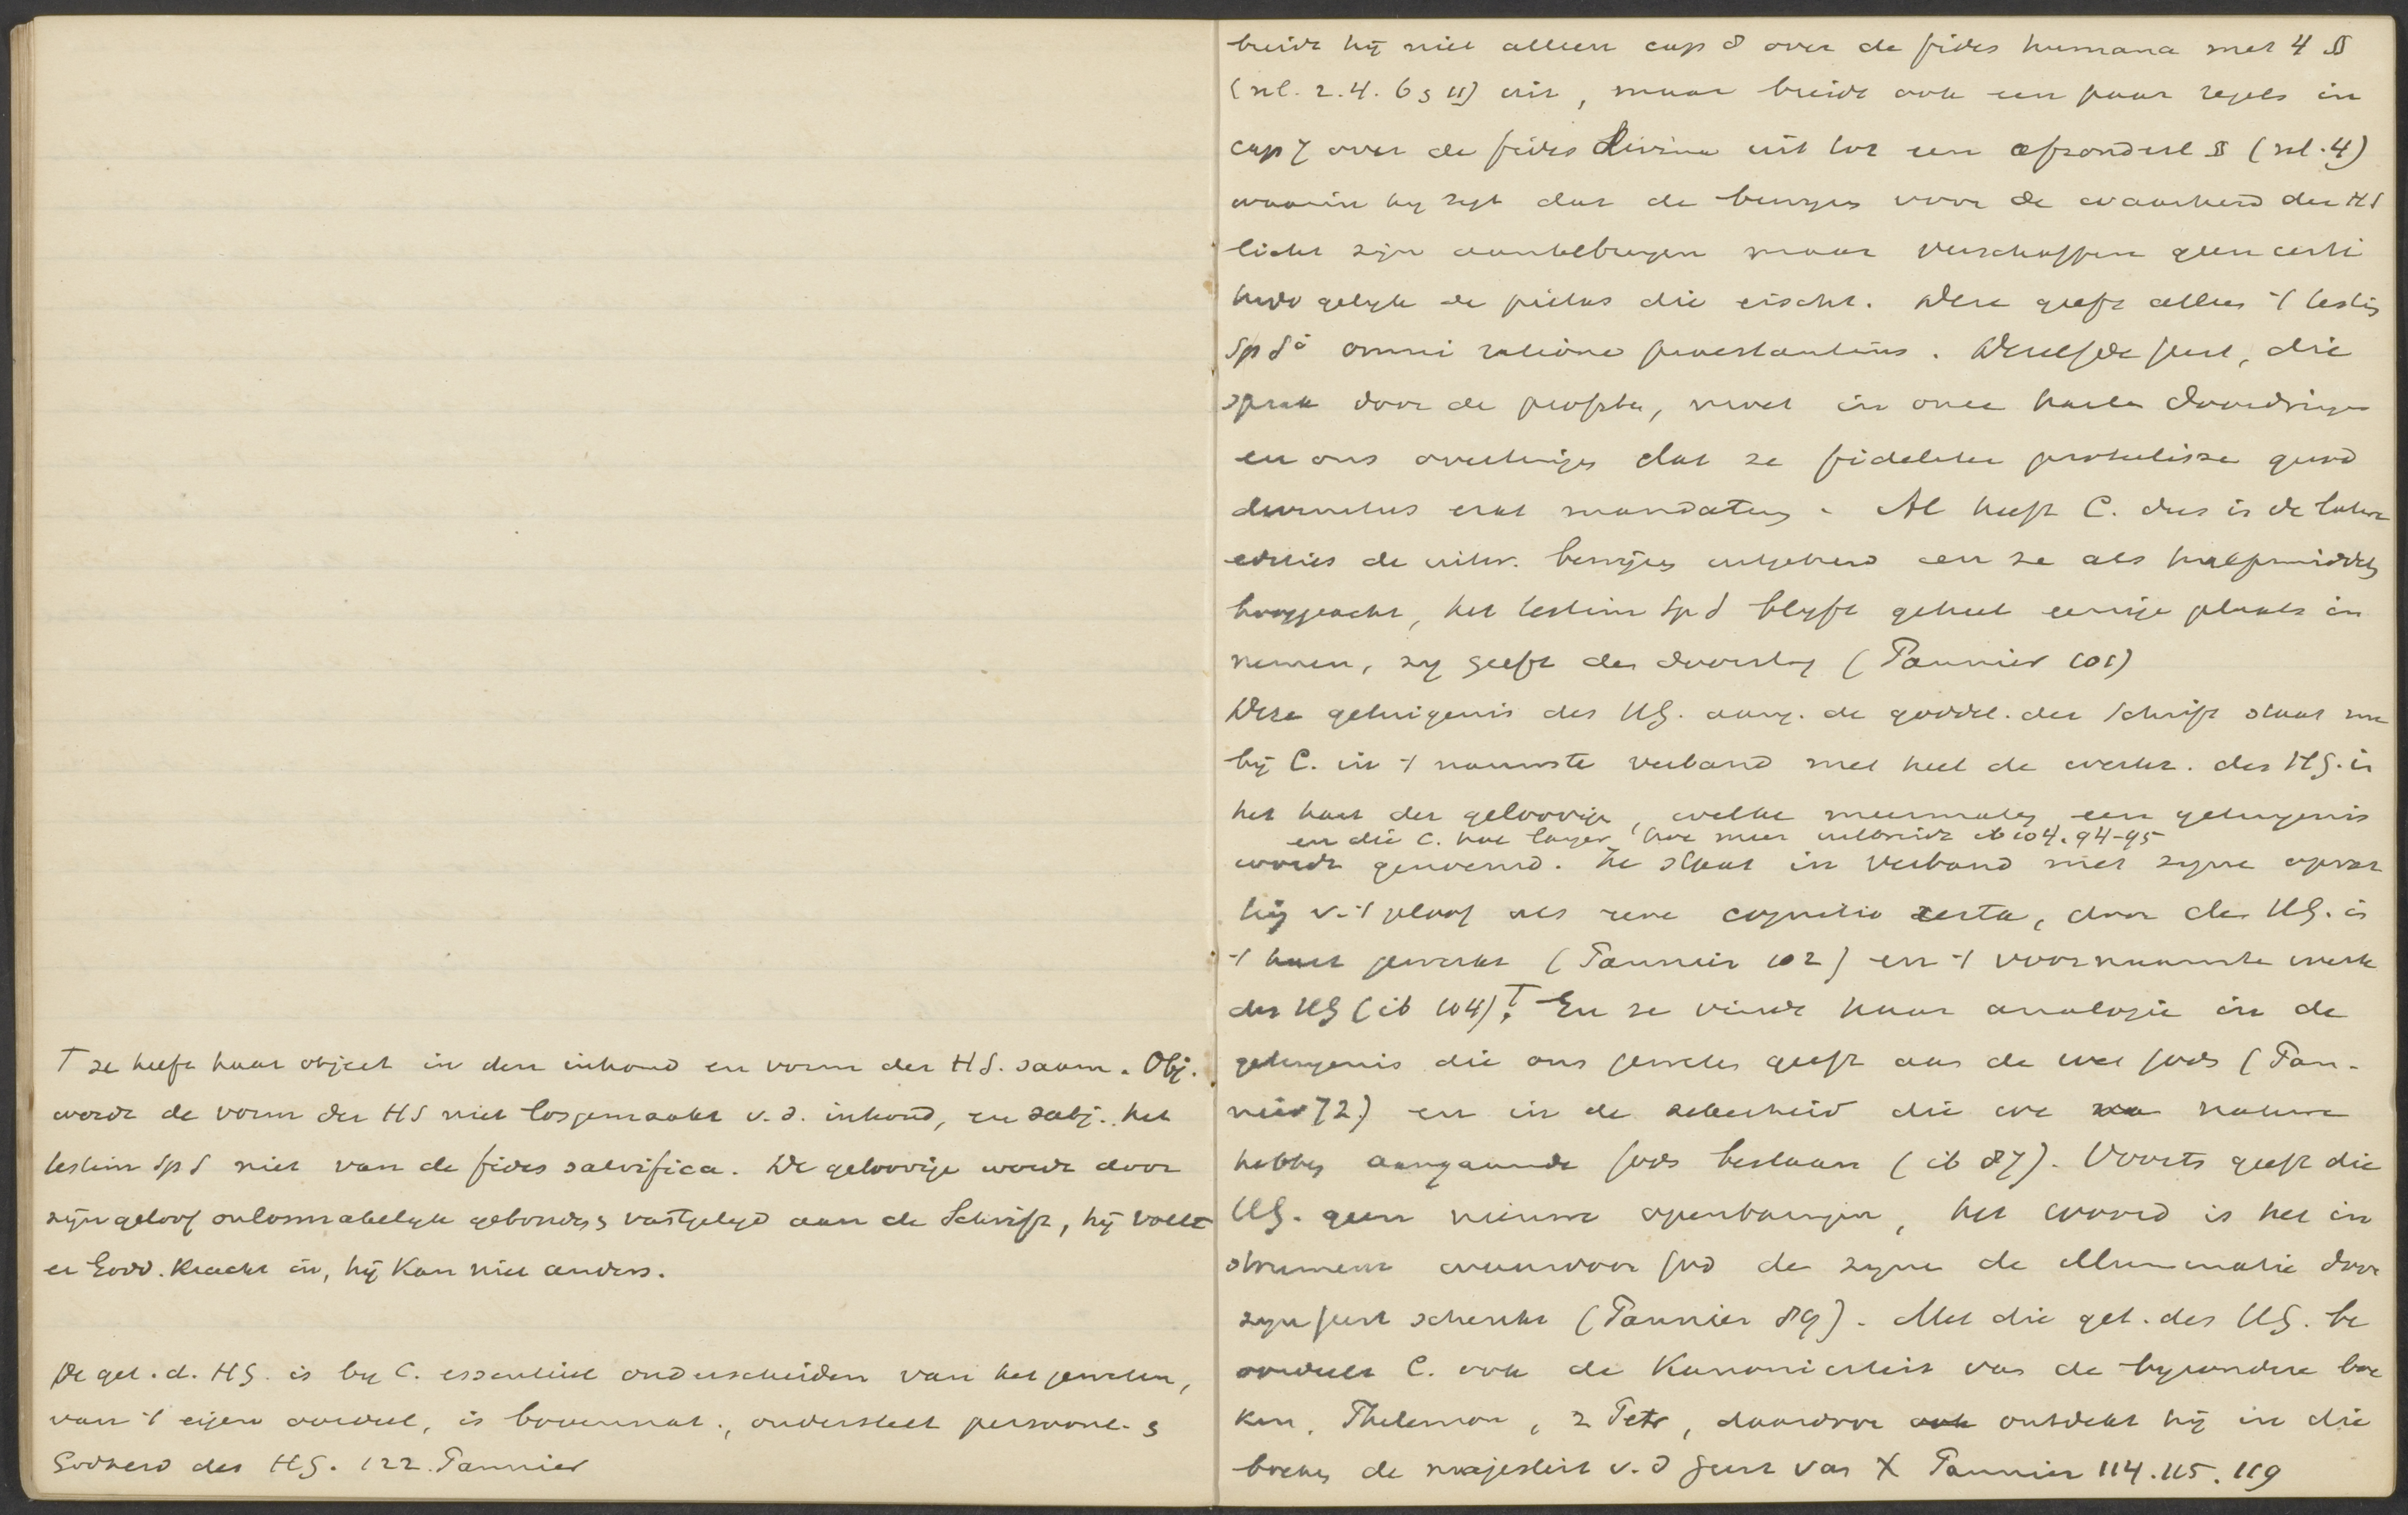 T ze heeft haar object in den inhoud en vorm der H S. saam. Obj.
wordt de vorm der HS niet losgemaakt v. d. inhoud, en subj. het
testim Sp S niet van de fides salvifica. De geloovige wordt door
zijn geloof onlosmakelijk gebonden & vastgelegd aan de Schrift, hij voelt
er Godd. kracht in, hij kan niet anders.
De get. d. HG. is by C. essentieel onderscheiden van het geweten,
van 't eigen oordeel, is bovennat., onderstelt persoonl. &
Godheid des HG. 122. Pannier
breidt hij niet alleen cap 8 over de fides humana met 4 §§
(nl. 2. 4. 6 & 11) uit, maar breidt ook een paar regels in
cap 7 over de fides divina uit tot een afzonderl § (nl. 4)
waarin hij zegt dat de bewijzen voor de waarheid der HS
licht zijn aantebrengen maar verschaffen geen certi
tudo gelijk de pietas die eischt. Deze geeft alleen 't testim
Sp Sⁱ omni ratione praestantius. Dezelfde geest, die
sprak door de profeten, moet in onze harten doordringen
en ons overtuigen dat ze fideliter protulisse quod
divinitus erat mandatum. Al heeft C. dus in de latere
edities de uitw. bewijzen uitgebreid en ze als hulpmiddelen
hooggeacht, het testim Sp S blijft geheel eenige plaats in
nemen, zij geeft den doorslag (Pannier 101)
Deze getuigenis des HG. aang. de goddel. der Schrift staat nu
bij C. in 't nauwste verband met heel de werkz. des HG. in
het hart der geloovigen, welke meermalen een getuigenis
en die C. hoe langer hoe meer uitbreidt ib 104. 94-95
wordt genoemd. Ze staat in verband met zijne opvat
ting v. 't geloof als eene cognitio certa, door den HG. in
't hart gewerkt (Pannier 102) en 't voornaamste werk
des HG (ib 104). T En ze vindt haar analogie in de
getuigenis die ons geweten geeft aan de wet Gods (Pan-
nier 72) en in de zekerheid die we van nature
hebben aangaande Gods bestaan (ib 87). Voorts geeft die
HG. geen nieuwe openbaringen, het woord is het in
strument waardoor God de zijne de illuminatie door
zijn geest schenkt (Pannier 89). Met die get. des HG. be
oordeelt C. ook de Kanoniciteit van de bijzondere boe
ken, Philemon, 2 Petr, daardoor ook ontdekt hij in die
boeken de majesteit v. d Geest van X Pannier 114. 115. 119